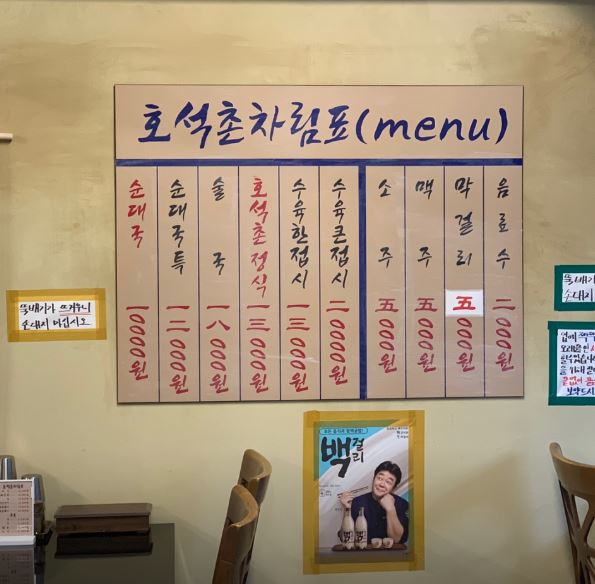 호석촌차림표(menu)
순대국 一0000원
순대국특 一二000원
술국 一八000원
호석촌정식 一三000원
수육한접시 一三000원
수육큰접시 二0000원
소주 五000원
맥주 五000원
막걸리 五000원
음료수 二000원
뚝배기가 뜨거우니
손대지 마십시오
뚝배기가
손대지
백걸리